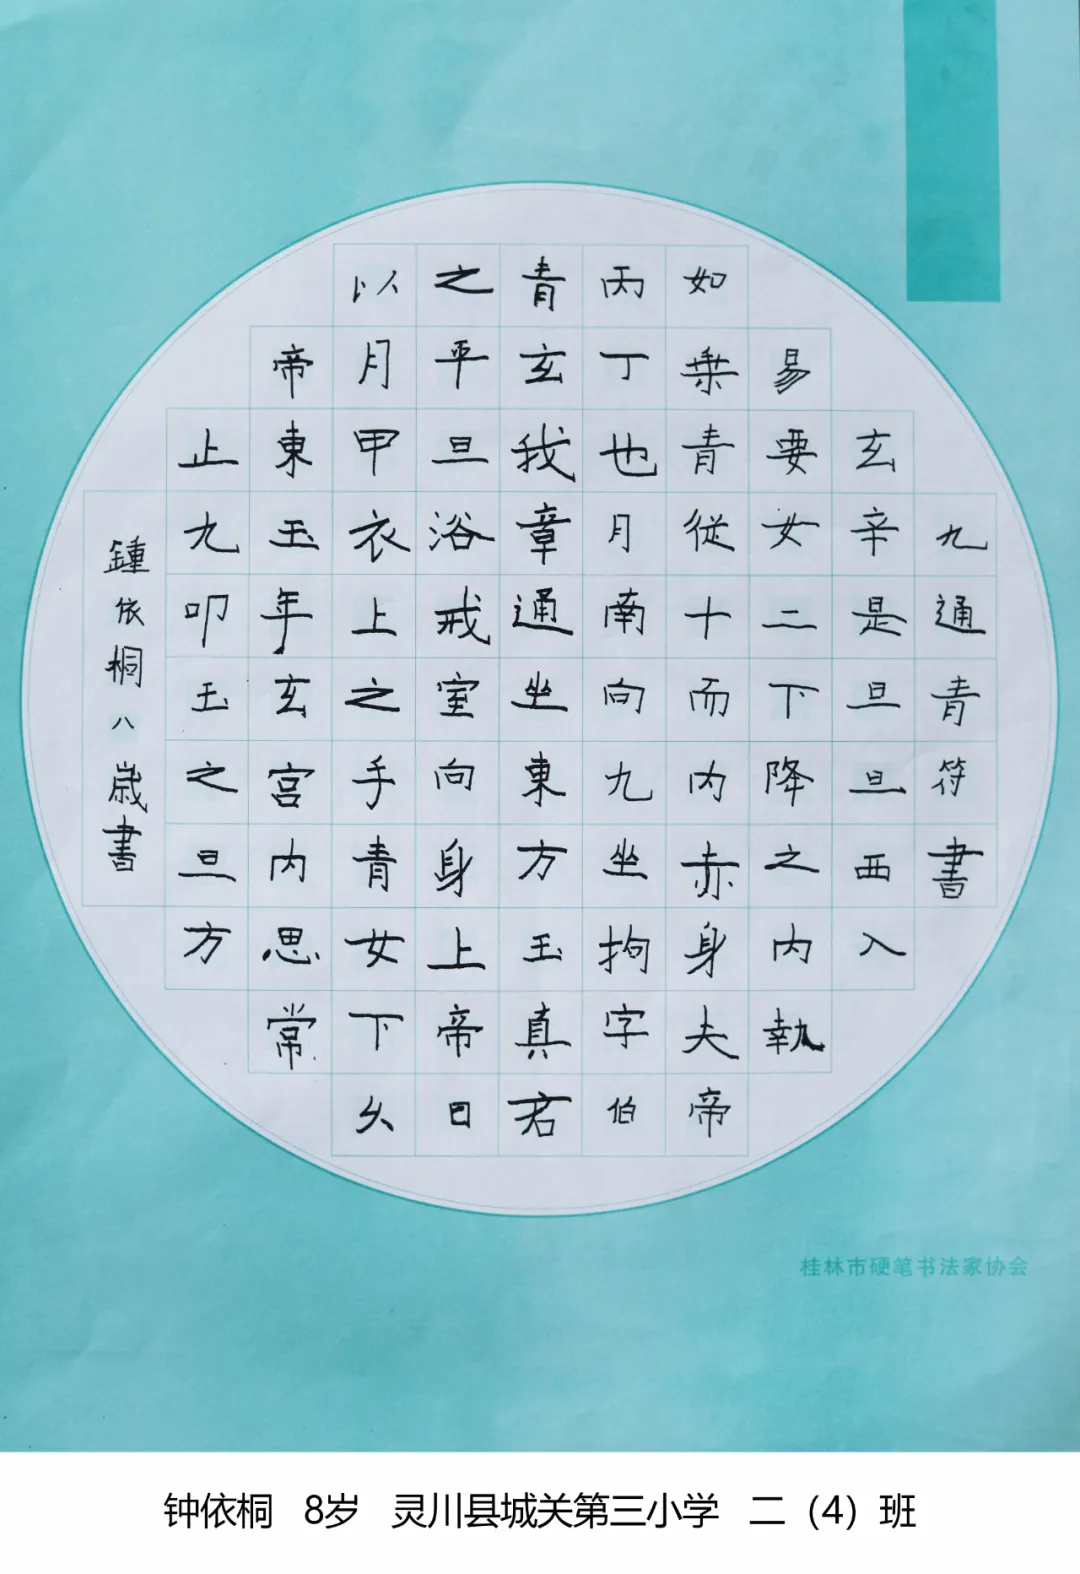 九通青符書
玄辛是旦旦西入
易要女二下降之内執
如乗青従十而内赤身夫帝
丙丁也月南向九坐拘字伯
青玄我章通坐東方玉真君
之平旦浴戒室向身上帝日
以月甲衣上之手青女下幺
帝東玉年玄宫内思常
止九叩玉之旦方
鍾依桐八歳書
桂林市硬笔书法家协会
钟依桐 8岁 灵川县城关第三小学 二（4）班